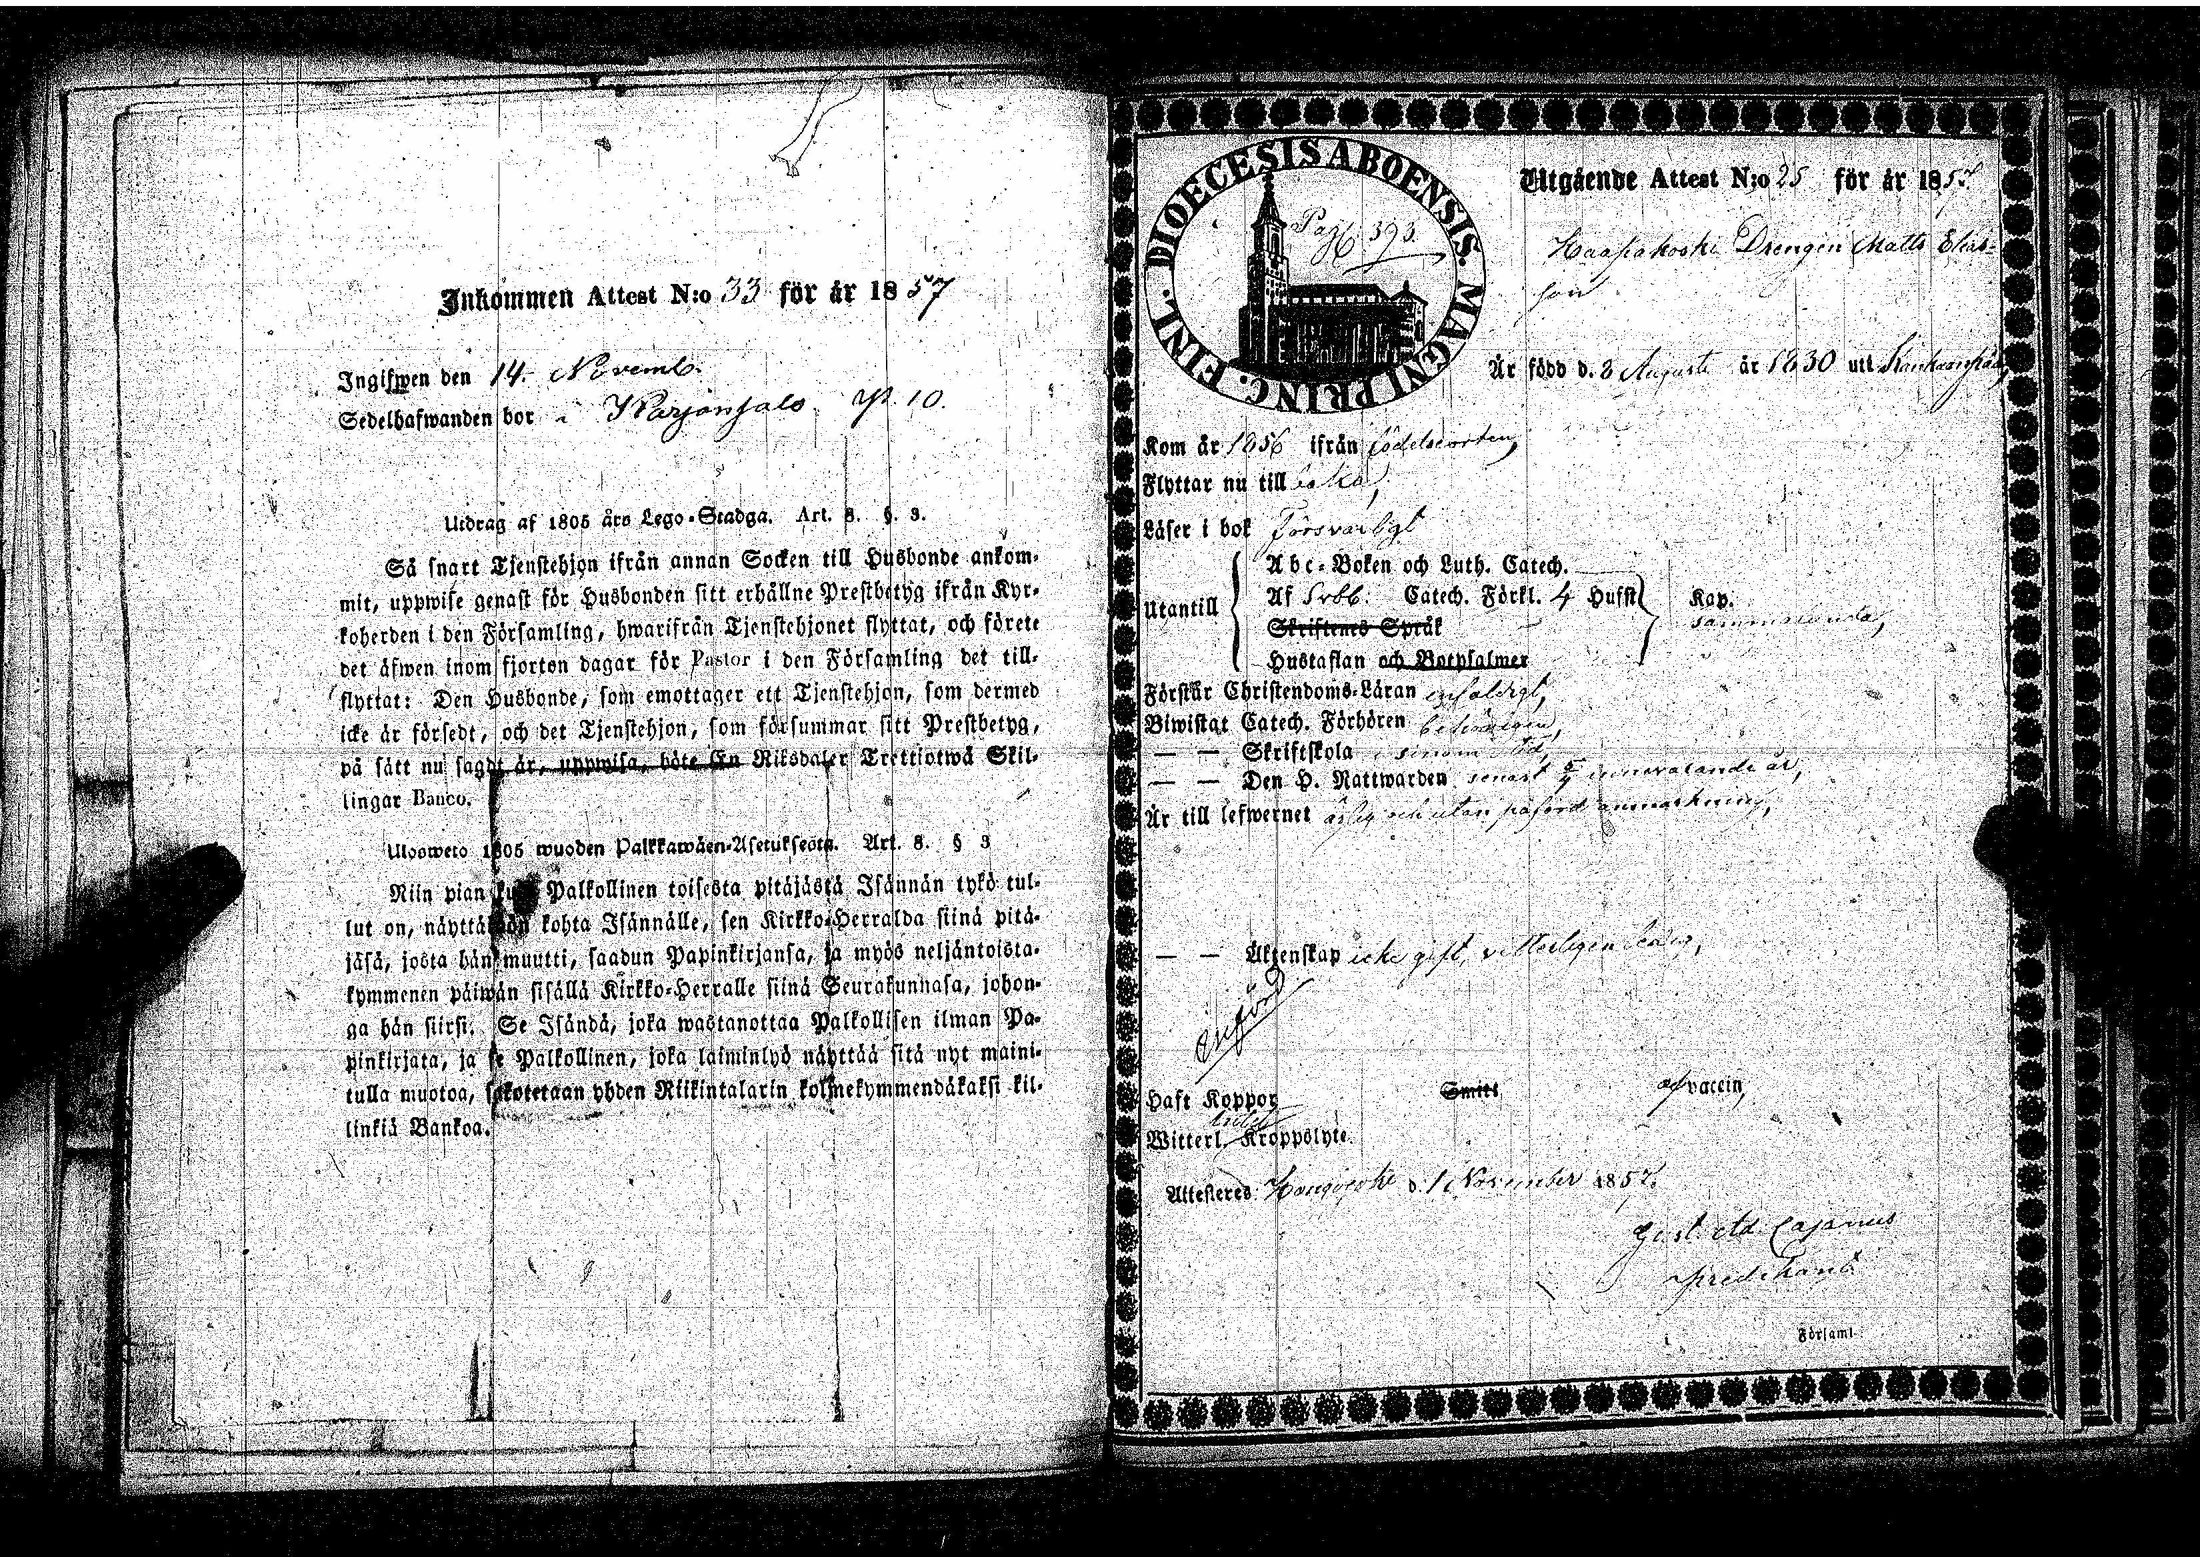 Inkommen Attest N:o 33 för år 1857
Ingifwen den 14. Novemb.
Sedelhafwanden bor i Karjansalo p. 10.
Utdrag af 1805 års Lego-Stadga. Art. 8. §. 3.
Så snart Tjenstehjon ifrån annan Socken till Husbonde ankom-
mit, uppwise genast för Husbonden sitt erhållne Prestbetyg ifrån Kyr-
koherden i den Församling, hwarifrån Tjenstehjonet flyttat, och förete
det äfwen inom fjorton dagar för Pastor i den Församling det till-
flyttat: Den Husbonde, som emottager ett Tjenstehjon, som dermed
icke är försedt, och det Tjenstehjon, som försummar sitt Prestbetyg,
på sätt nu sagdt är, uppwisa, böte En Riksdaler Trettiotwå Skil-
lingar Banco.
Ulosweto 1805 wuoden Palkkawäen-Asetuksesta. Art. 8. § 3
Niin pian kuin Palkollinen toisesta pitäjästä Isännän tykö tul-
lut on, näyttäköön kohta Isännälle, sen Kirkko-Herralda siinä pitä-
jäsä, josta hän muutti, saadun Papinkirjansa, ja myös neljäntoista-
kymmenen päiwän sisällä Kirkko-Herralle siinä Seurakunnasa, johon-
ga hän siirsi. Se Isändä, joka wastanottaa Palkollisen ilman Pa-
pinkirjata, ja se Palkollinen, joka laiminlyö näyttää sitä nyt maini-
tulla muotoa, sakotetaan yhden Riikintalarin kolmekymmendäkaksi kil-
linkiä Bankoa.
DIOECESIS ABOENSIS. MAGNI PRINC. FINL.
Pag 393.
Utgående Attest N:o 25 för år 1857
Haapakoski Drengen Matts Elias-
son
Är född d. 8 Augusti år 1830 uti Kankaanpää,
Kom år 1856 ifrån födelseorten,
Flyttar nu till
Läser i bok Försvarligt
Utantill
Abc-Boken och Luth. Catech.
Af Svbb. Catech. Förkl. 4 Hufst Kap.
sammalunda,
Skriftenes Språk
Hustaflan och Botpsalmer
Förstår Christendoms-Läran enfaldigt,
Biwistat Catech. Förhören behörigen,
— — Skriftskola i sinom tid,
— — Den H. Nattwarden senast innevarande år,
Är till lefwernet ärlig och utan påförd anmärkning,
— — Äktenskap icke gift, vitterligen ledig,
Haft Koppor Smitt af vaccin,
Witterl. Kroppslyte
Attesteras Hongojoki d. 1 November 1857.
Gust. Ad. Cajanus
Predikant
i Församl.